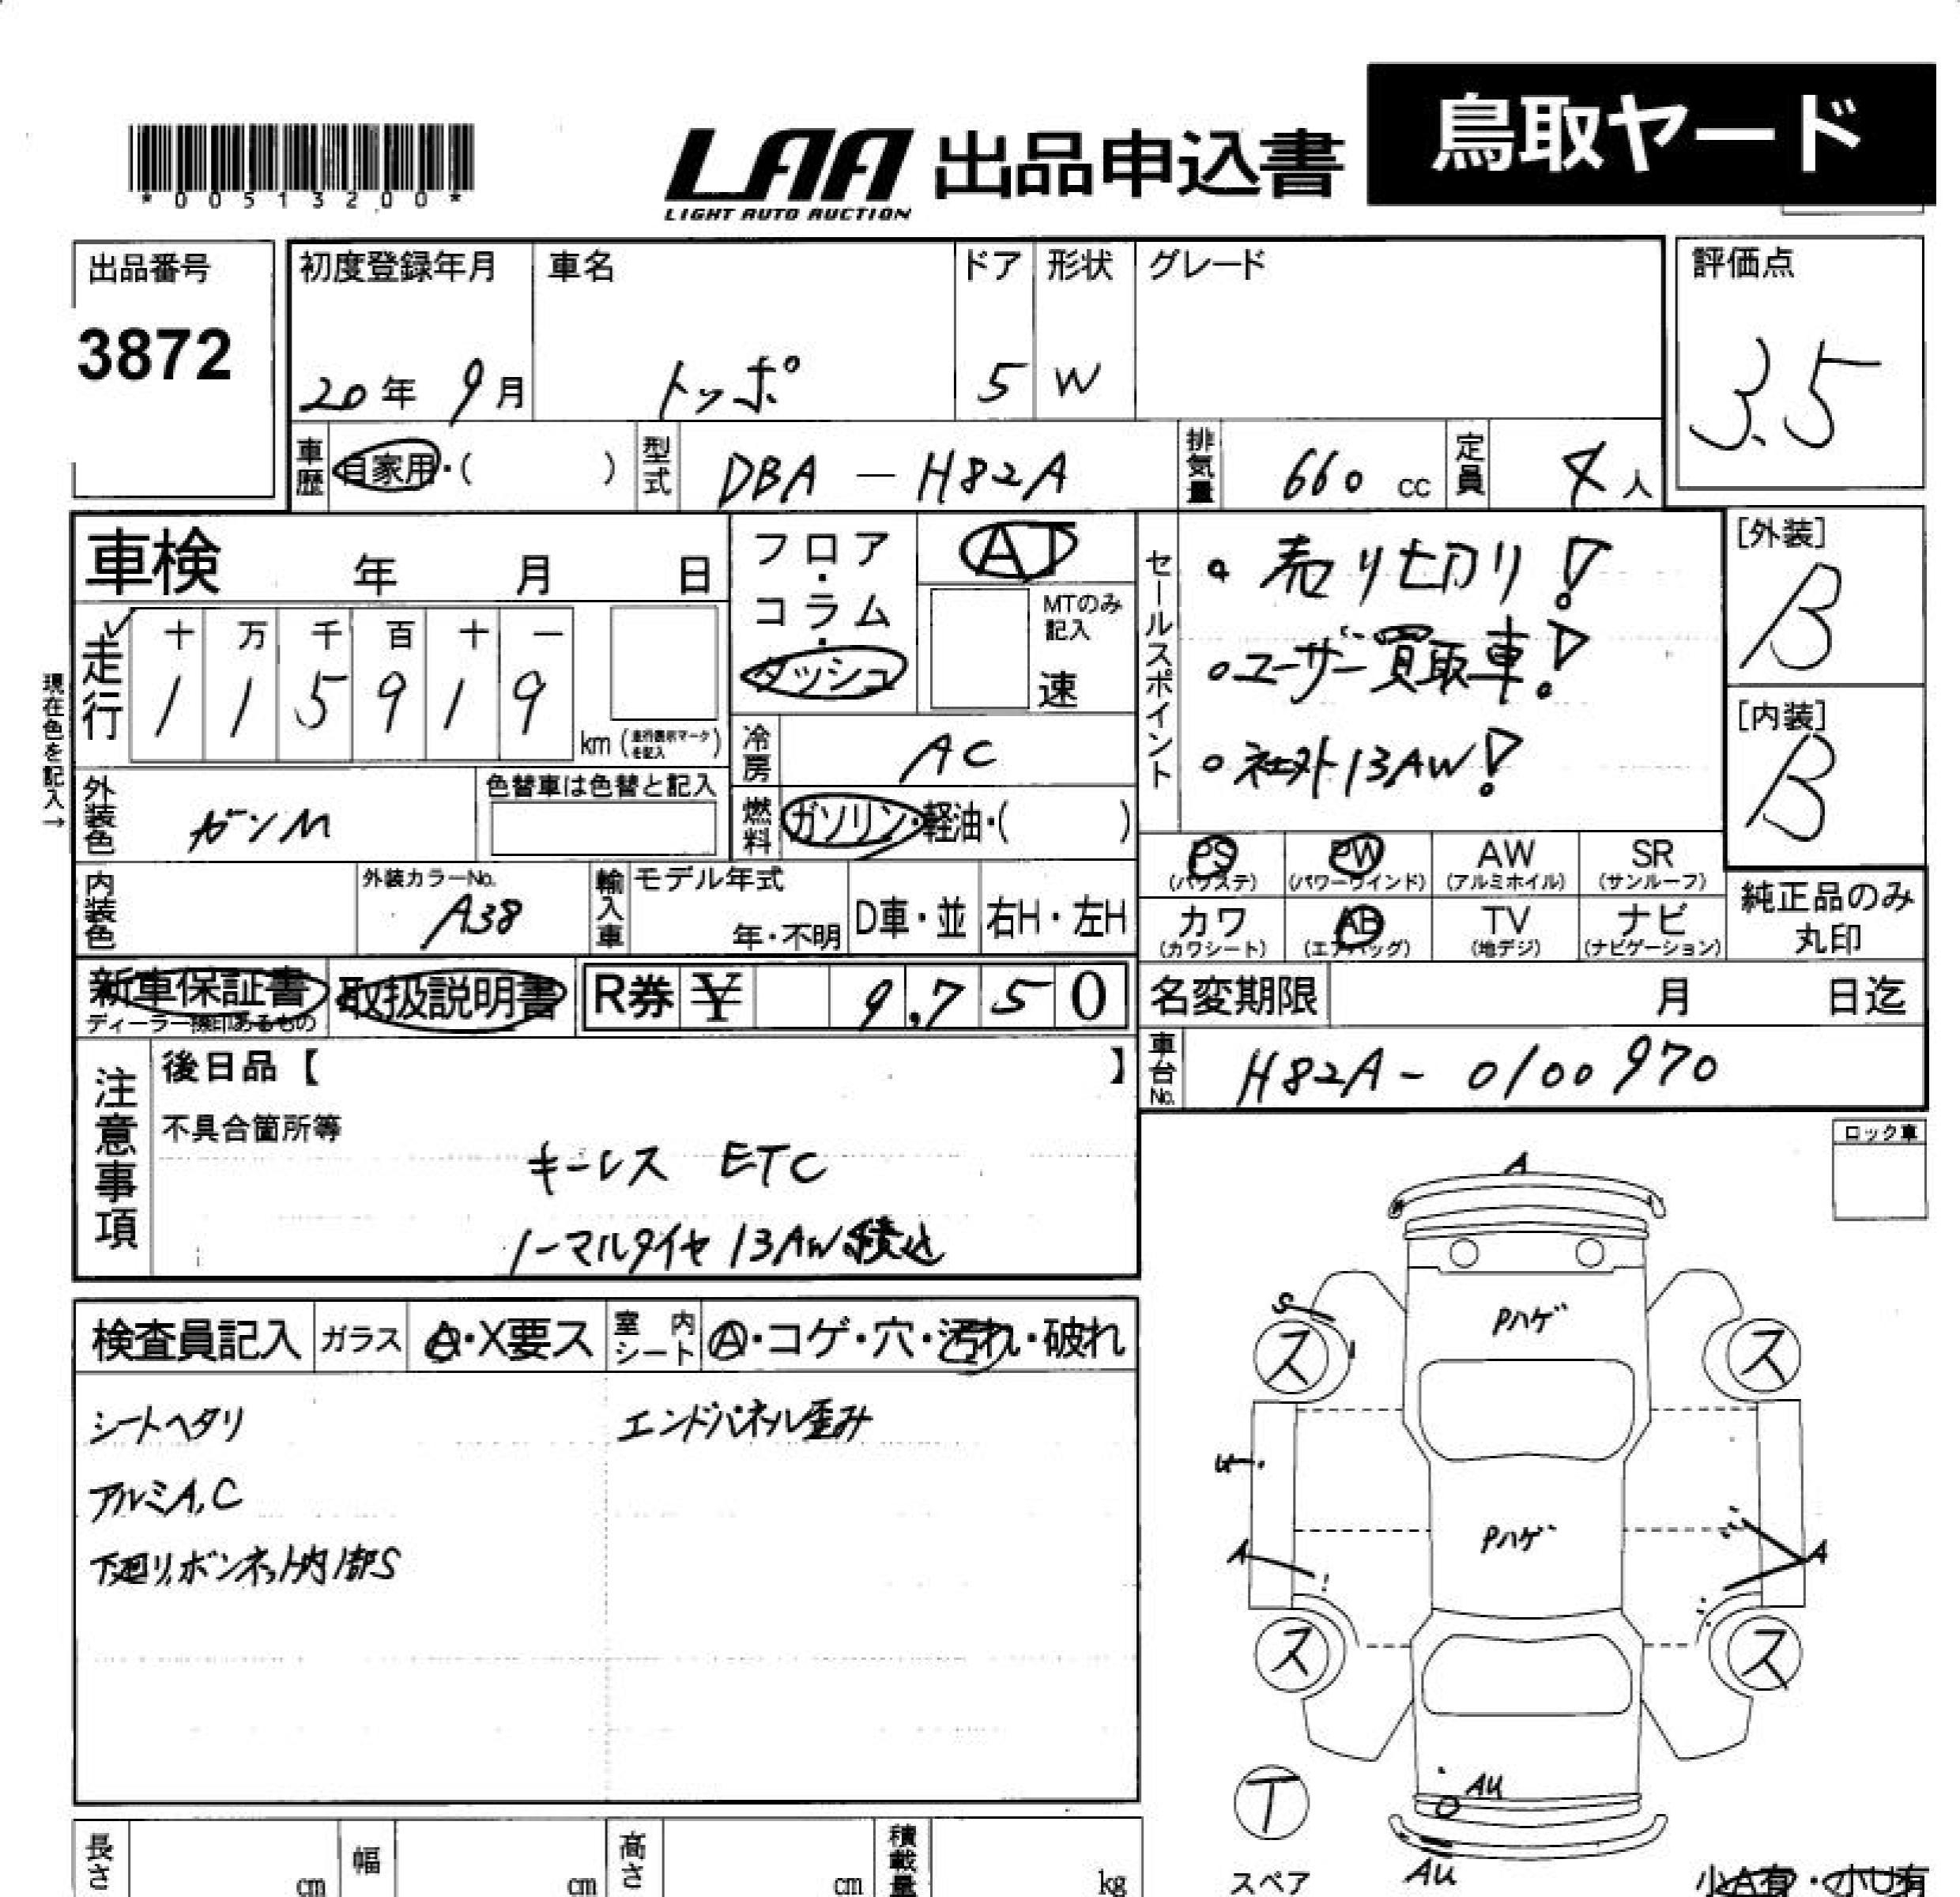 鳥取ヤード
LAA 出品申込書
LIGHT AUTO AUCTION
*00513200*
出品番号 初度登録年月 車名 ドア 形状 グレード 評価点
3872
20年 9月 トッポ 5 W
3.5
車歴 自家用・( ) 型式 DBA-H82A 排気量 660 cc 定員 4人
車検 年 月 日
フロア・コラム・ダッシュ
AT
MTのみ記入
速
セールスポイント
。売り切り!
。ユーザー買取車!
。社外13AW!
[外装]
B
[内装]
B
現在色を記入→
走行 十 万 千 百 十 一
1 1 5 9 1 9
km (走行表示マークを記入)
冷房 AC
外装色 ガンM
色替車は色替と記入
燃料 ガソリン・軽油・( )
PS (パワステ) PW (パワーウインド) AW (アルミホイル) SR (サンルーフ)
カワ (カワシート) AB (エアバッグ) TV (地デジ) ナビ (ナビゲーション)
純正品のみ丸印
内装色 外装カラーNo. A38
輸入車 モデル年式 年・不明 D車・並 右H・左H
新車保証書
ディーラー捺印あるもの
取扱説明書
R券 ¥ 9,750
名変期限 月 日迄
車台No. H82A-0100970
注意事項
後日品【 】
不具合箇所等
キーレス ETC
ノーマルタイヤ 13AW積込
ロック車
検査員記入 ガラス A・X要ス 室内シート A・コゲ・穴・汚れ・破れ
シートヘタリ エンドパネル歪み
アルミA,C
下廻り,ボンネット内部S
A
S
Pハゲ
ス ス
U
Pハゲ
A A
ス ス
AU
AU
T
スペア
小A有・小U有
長さ cm 幅 cm 高さ cm 積載量 kg